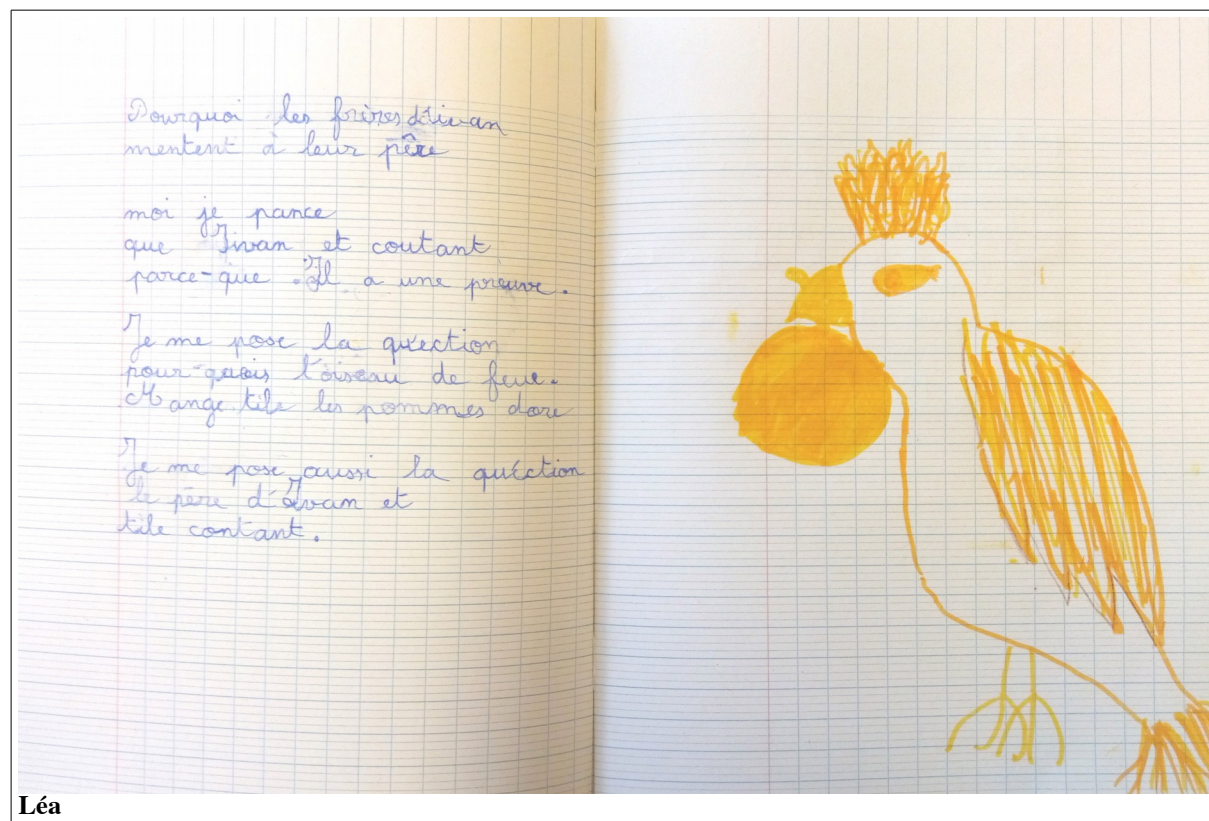 Pourquoi les frères d'ivan
mentent à leur père
moi je pance
que Iivan et coutant
parce-que. Il a une preuve.
Je me pose la quection
pour-quois l'oiseau de feue.
Mange tile les pommes dore
Je me pose aussi la quéction
le père d'Ivan et
tile contant.
Léa